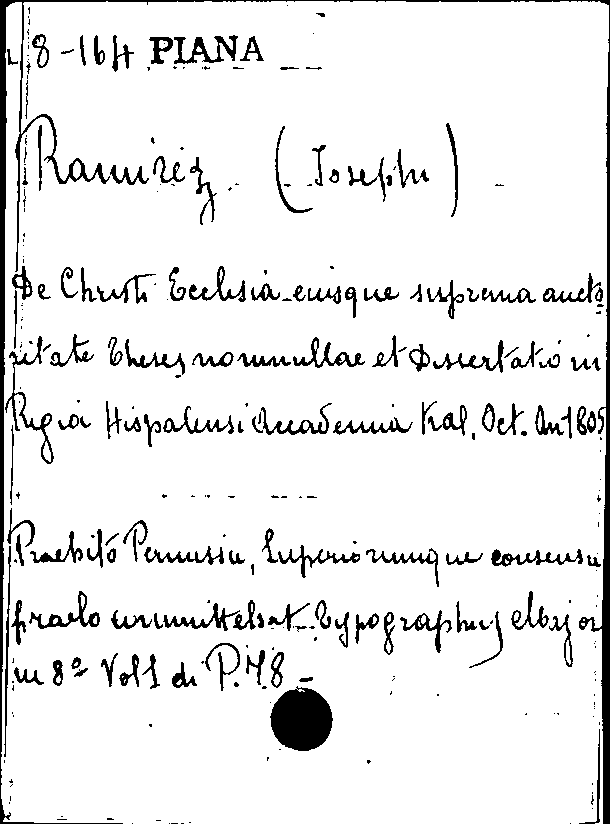 8-164 PIANA
Ramirez (Joseph)
De Christi Ecclesia eiusque suprema aucto
ritate Theses nonnullae et Dissertatio in
Regia Hispalensi Accademia Kal. Oct. An 1805
Praehito Permissu, Superiorumque consensu
praelo Typographus Major
in 8º Vol 1 di P. 78 -